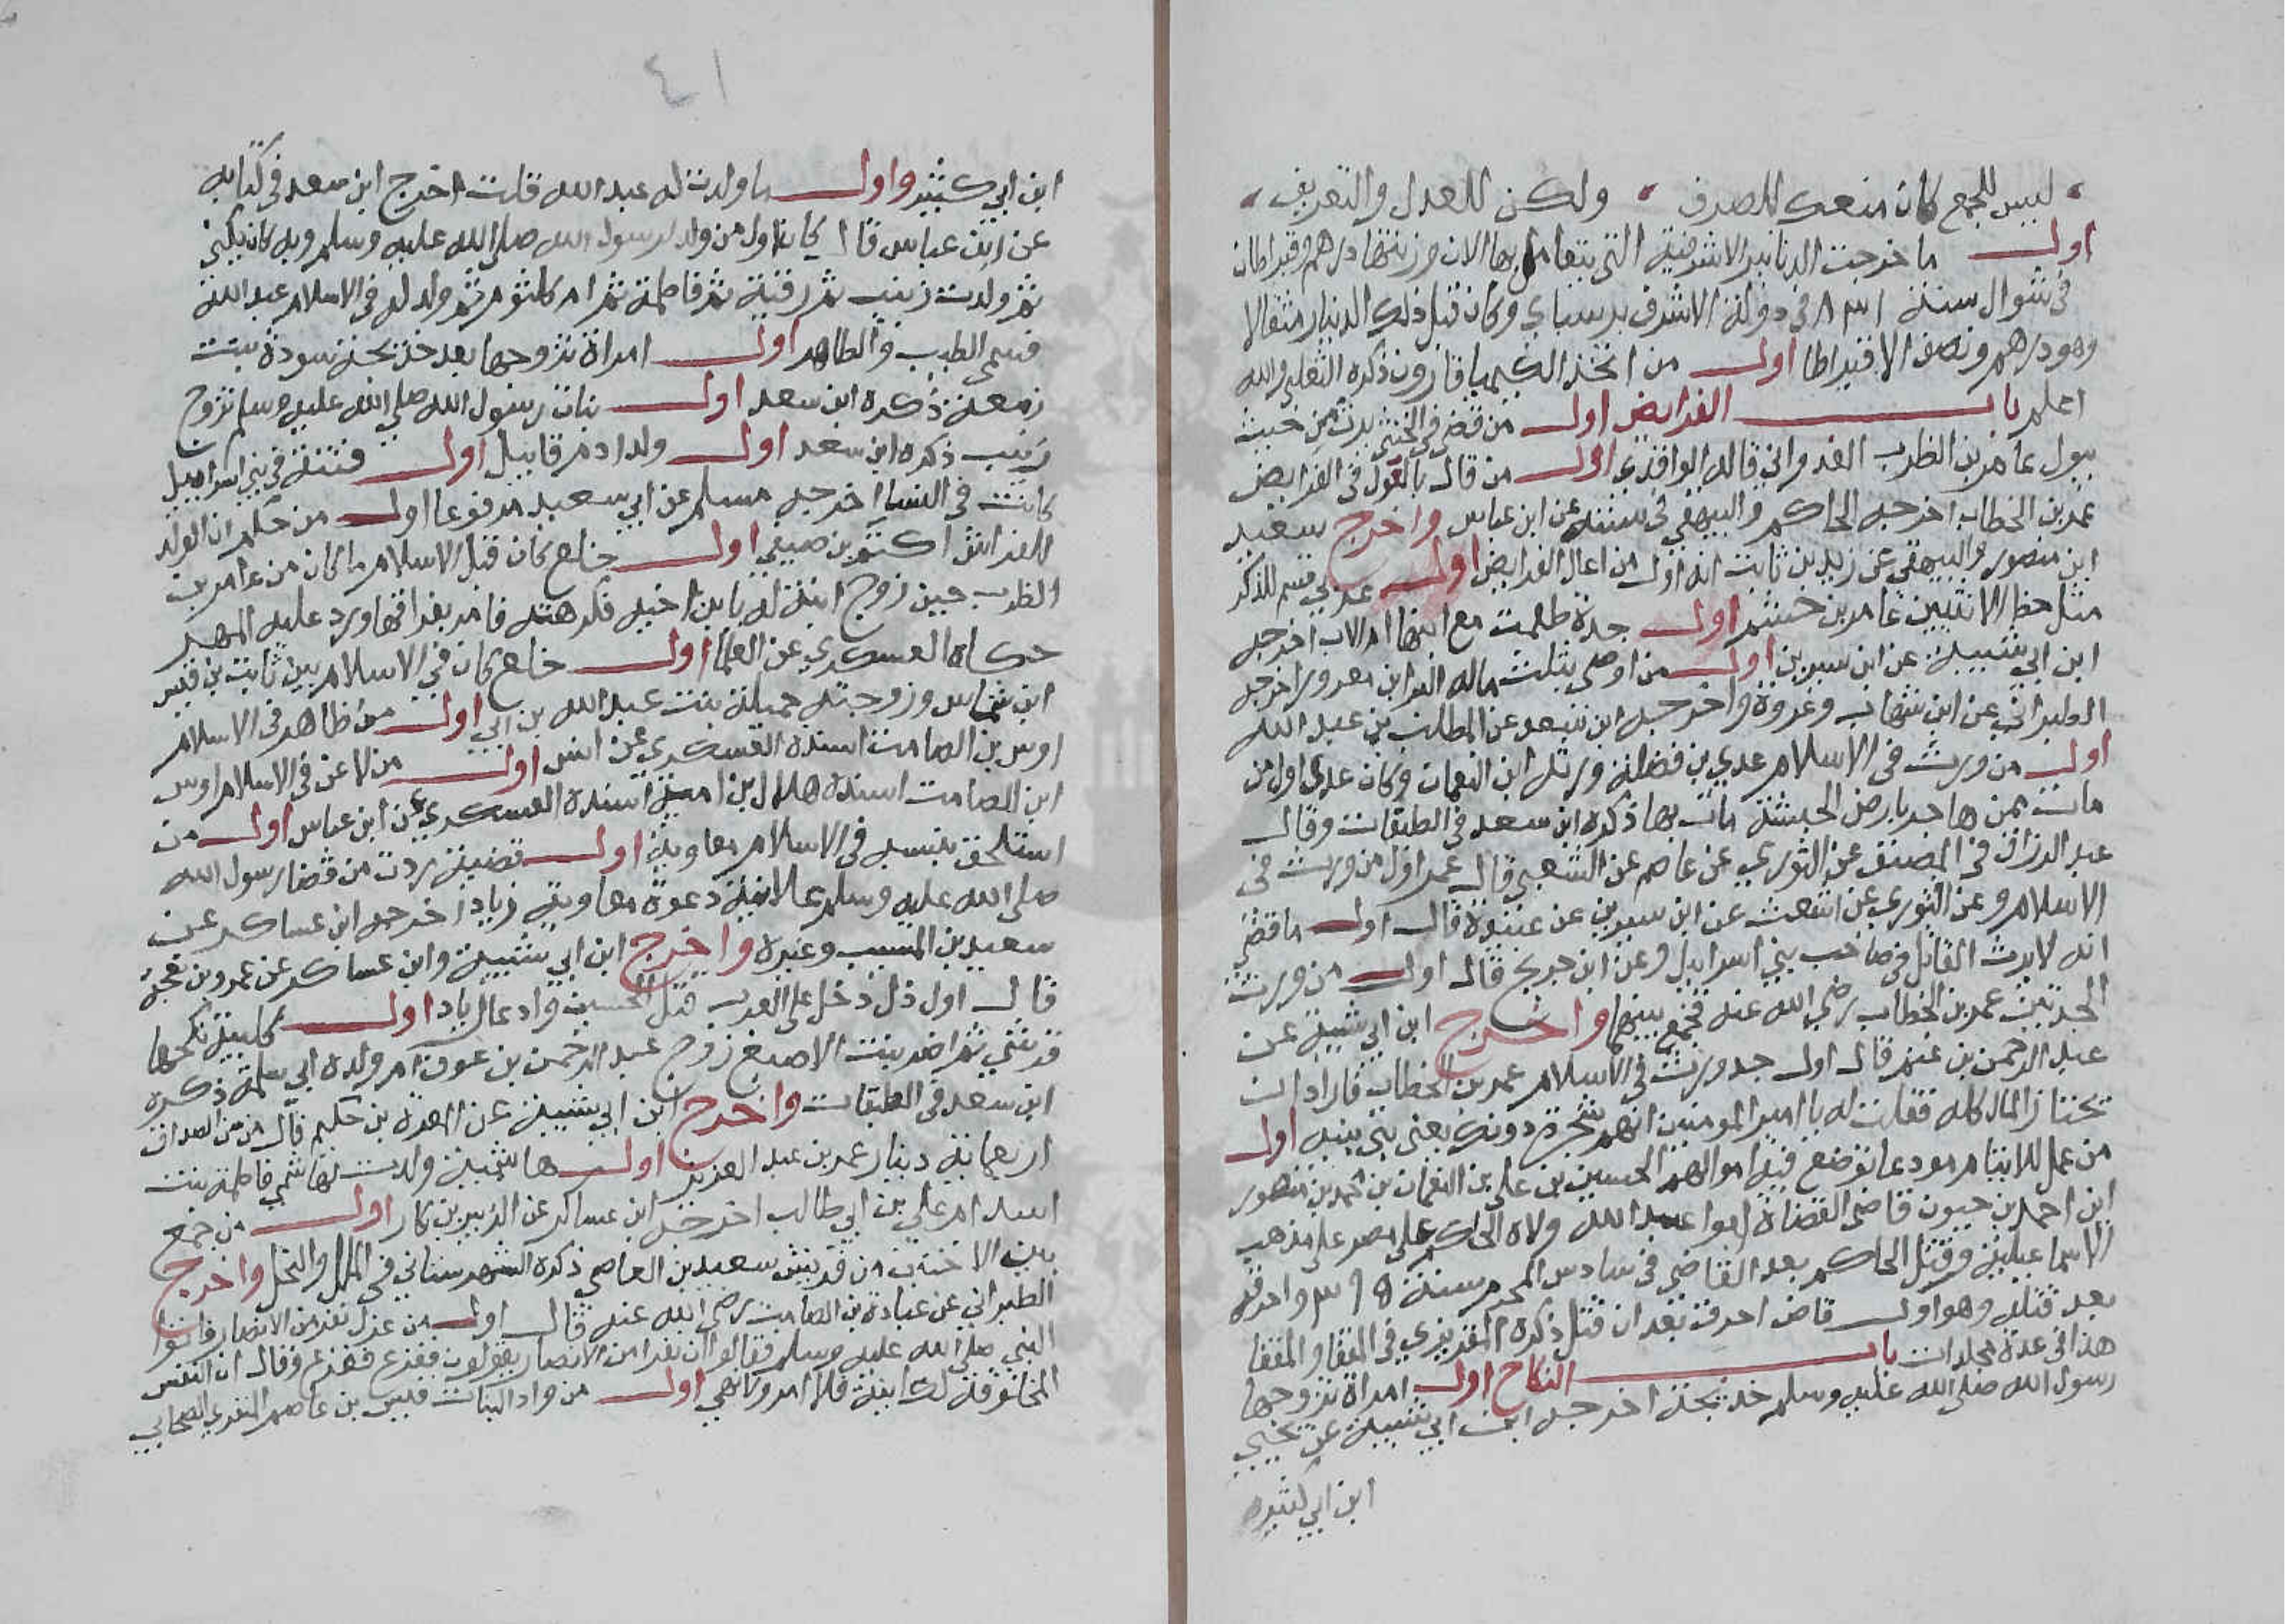 ليس للجمع كان منعك للصرف ولكن للعدل والتعريف
اول ما خرجت الدنانير الاشرفية التي يتعامل بها الان وزنتها درهم وقيراطان
في شوال سنة ٨٣١ في دولة الاشرف برسباي وكان قبل ذلك الدينار مثقالا
وهو درهم ونصف الا قيراطا اول من اتخذ الكيميا قارون ذكره الثعلبي والله
اعلم باب الفرايض اول من قضى في الخنثى يرث من حيث
يبول عامر بن الظرب العدواني قاله الواقدي اول من قال بالعول في الفرايض
عمر بن الخطاب اخرجه الحاكم والبيهقي في سننه عن ابن عباس واخرج سعيد
ابن منصور والبيهقي عن زيد بن ثابت انه اول من اعال الفرايض اول عربي قسم للذكر
مثل حظ الانثيين عامر بن جشم اول جدة طعمت مع ابنها ام الاب اخرجه
ابن ابي شيبة عن ابن سيرين اول من اوصى بثلث ماله البرا بن معرور اخرجه
الطبراني عن ابن شهاب وعروة واخرجه ابن سعد عن المطلب بن عبد الله
اول من ورث في الاسلام عدي بن فضلة ورثه ابن النعمان وكان عدي اول من
مات ممن هاجر بارض الحبشة مات بها ذكره ابن سعد في الطبقات وقال
عبد الرزاق في المصنف عن الثوري عن عاصم عن الشعبي قال عمر اول من ورث في
الاسلام وعن الثوري عن اشعث عن ابن سيرين عن عبيدة قال اول ما قضي
انه لا يرث القاتل في صاحب بني اسرائيل وعن ابن جريج قال اول من ورث
الجدتين عمر بن الخطاب رضي الله عنه فجمع بينهما واخرج ابن ابي شيبة عن
عبد الرحمن بن غنم قال اول جد ورث في الاسلام عمر بن الخطاب فاراد ان
يحتاز المال كله فقلت له يا امير المومنين انهم شجرة دونك يعني بني بنيه اول
من عمل للايتام مودعا توضع فيه اموالهم الحسين بن علي بن النعمان بن محمد بن منصور
ابن احمد بن حيون قاضي القضاة ابوا عبد الله ولاه الحاكم على مصر على مذهب
الاسماعيلية وقتل الحاكم بعد القاضي في سادس المحرم سنة ٣٩٥ واحرقه
بعد قتله وهو اول قاض احرق بعد ان قتل ذكره المقريزي في المقفا والمقفا
هذا في عدة مجلدات باب النكاح اول امراة تزوجها
رسول الله صلى الله عليه وسلم خديجة اخرجه ابن ابي شيبة عن يحيى
ابن ابي كثير
٤١
ابن ابي كثير واول ما ولدت له عبد الله قلت اخرج ابن سعد في كتابه
عن ابن عباس قال كان اول من ولد لرسول الله صلى الله عليه وسلم وبه كان يكنى
ثم ولدت زينب ثم رقية ثم فاطمة ثم ام كلثوم ثم ولد له في الاسلام عبد الله
فسمي الطيب والطاهر اول امراة تزوجها بعد خديجة سودة بنت
زمعة ذكره ابن سعد اول بنات رسول الله صلى الله عليه وسلم تزوج
زينب ذكره ابن سعد اول ولد ادم قابيل اول فتنة في بني اسراييل
كانت في النسا اخرجه مسلم عن ابي سعيد مرفوعا اول من حكم ان الولد
للفراش اكثم بن صيفي اول خلع كان قبل الاسلام ما كان من عامر بن
الظرب حين زوج ابنة له بابن اخيه فكرهته فامر بفراقها ورد عليه المهر
حكاه العسكري عن العلما اول خلع كان في الاسلام بين ثابت بن قيس
ابن شماس وزوجته جميلة بنت عبد الله بن ابي اول من ظاهر في الاسلام
اوس بن الصامت اسنده العسكري عن انس اول من لاعن في الاسلام اوس
ابن الصامت اسنده هلال بن امية اسنده العسكري عن ابن عباس اول من
استلحق بنسبه في الاسلام معاوية اول قضية ردت من قضا رسول الله
صلى الله عليه وسلم علانية دعوة معاوية زيادا اخرجه ابن عساكر عن
سعيد بن المسيب وغيره واخرج ابن ابي شيبة وابن عساكر عن عمرو بن نعجة
قال اول ذل دخل على العرب قتل الحسين وادعا زياد اول كلبية نكحها
قرشي تماضر بنت الاصبغ زوج عبد الرحمن بن عوف ام ولده ابي سلمة ذكره
ابن سعد في الطبقات واخرج ابن ابي شيبة عن المغيرة بن حكيم قال من سن الصداق
اربعماية دينار عمر بن عبد العزيز اول هاشمية ولدت لهاشمي فاطمة بنت
اسد ام علي بن ابي طالب اخرجه ابن عساكر عن الزبير بن بكار اول من جمع
بين الاختين من قريش سعيد بن العاصي ذكره الشهرستاني في الملل والنحل واخرج
الطبراني عن عبادة بن الصامت رضي الله عنه قال اول من عزل نفر من الانصار فاتوا
النبي صلى الله عليه وسلم فقالوا ان نفرا من الانصار يعزلون ففزع وقال ان النفس
المخلوقة لكاينة فلا امر ولا نهي اول من واد البنات قيس بن عاصم المنقري الصحابي